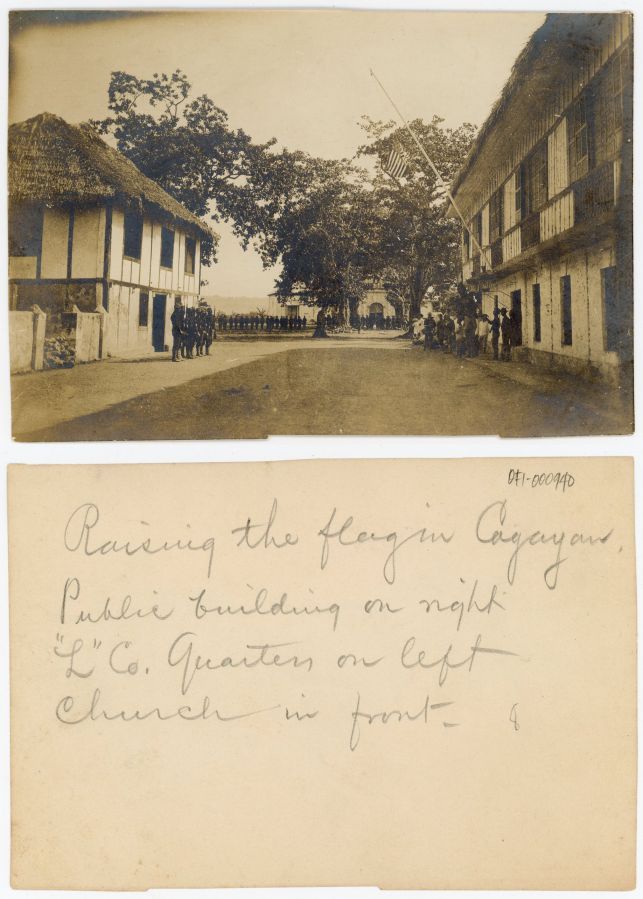 OFI-000940
Raising the flag in Cagayan.
Public building on right
"L" Co. Quarters on left
Church in front- 8